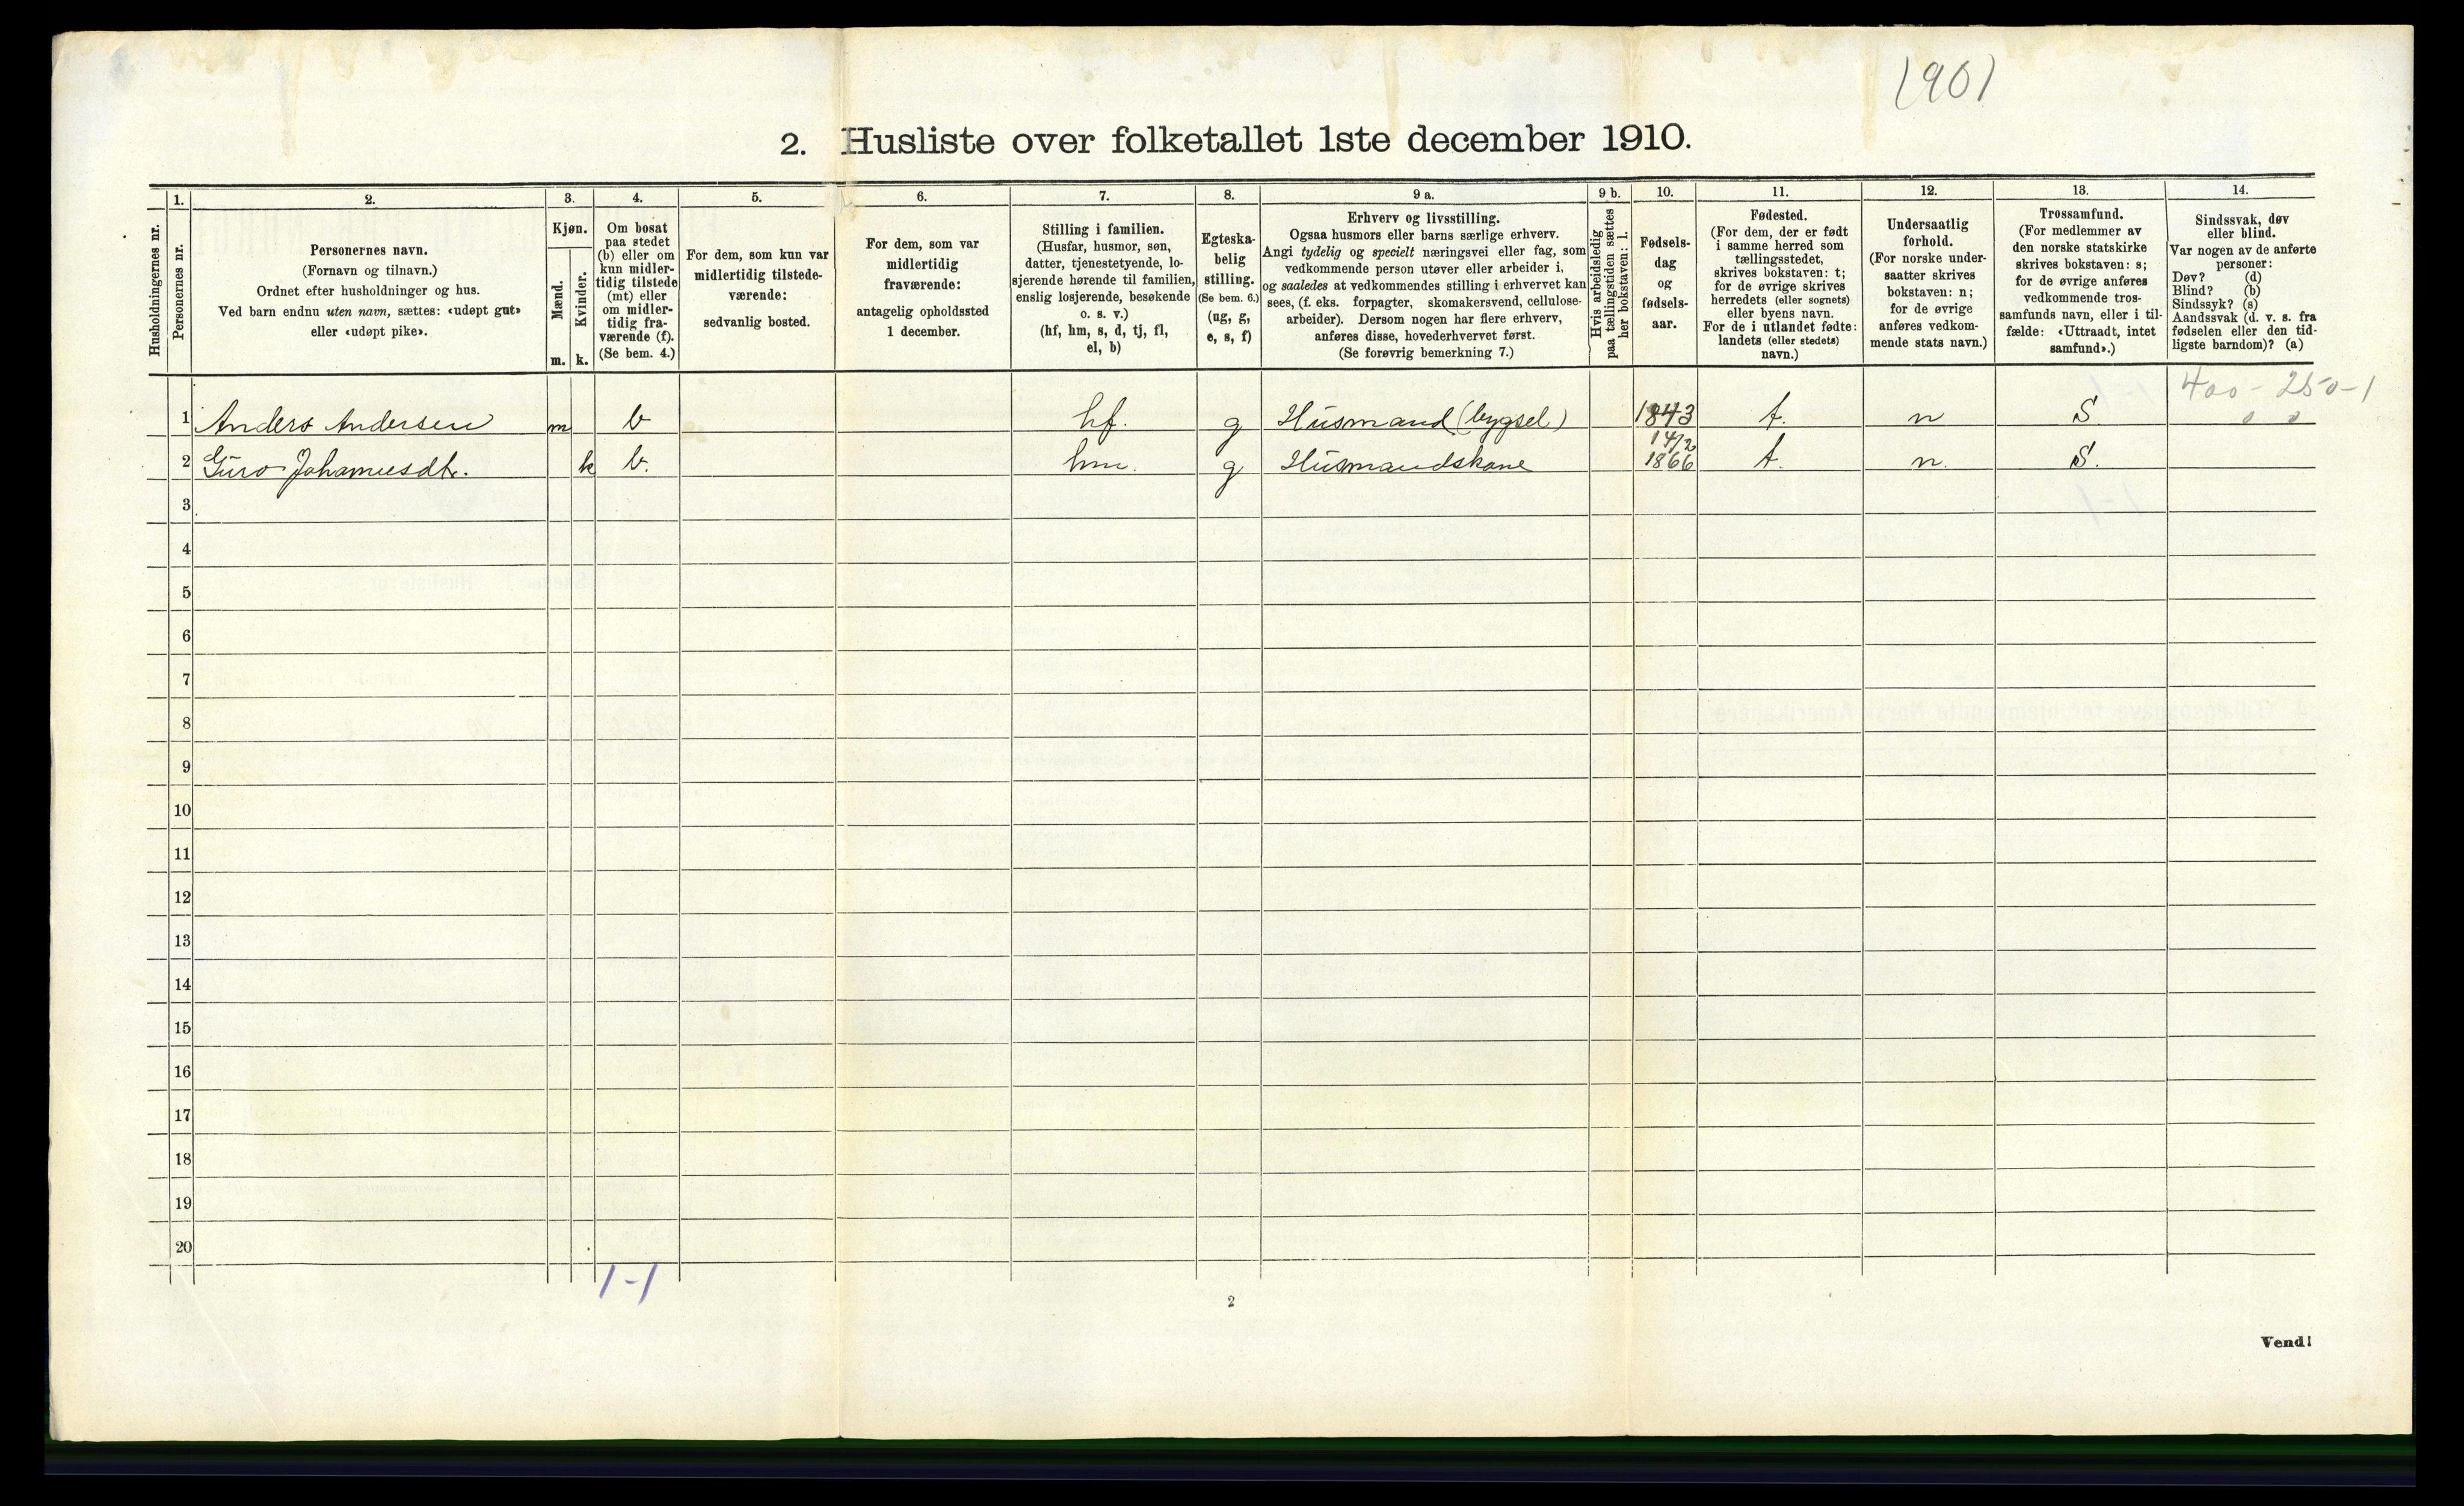 1901
2. Husliste over folketallet 1ste december 1910.
Husholdningernes nr.
1. Personernes nr.
2. Personernes navn.
(Fornavn og tilnavn.)
Ordnet efter husholdninger og hus.
Ved barn endnu uten navn, sættes: «udøpt gut»
eller «udøpt pike».
3. Kjøn.
Mænd. m.
Kvinder. k.
4. Om bosat
paa stedet
(b) eller om
kun midler-
tidig tilstede
(mt) eller
om midler-
tidig fra-
værende (f).
(Se bem. 4.)
5. For dem, som kun var
midlertidig tilstede-
værende:
sedvanlig bosted.
6. For dem, som var
midlertidig
fraværende:
antagelig opholdssted
1 december.
7. Stilling i familien.
(Husfar, husmor, søn,
datter, tjenestetyende, lo-
sjerende hørende til familien,
enslig losjerende, besøkende
o. s. v.)
(hf, hm, s, d, tj, fl,
el, b)
8. Egteska-
belig
stilling.
(Se bem. 6.)
(ug, g,
e, s, f)
9 a. Erhverv og livsstilling.
Ogsaa husmors eller barns særlige erhverv.
Angi tydelig og specielt næringsvei eller fag, som
vedkommende person utøver eller arbeider i,
og saaledes at vedkommendes stilling i erhvervet kan
sees, (f. eks. forpagter, skomakersvend, cellulose-
arbeider). Dersom nogen har flere erhverv,
anføres disse, hovederhvervet først.
(Se forøvrig bemerkning 7.)
9 b. Hvis arbeidsledig
paa tællingstiden sættes
her bokstaven: l.
10. Fødsels-
dag
og
fødsels-
aar.
11. Fødested.
(For dem, der er født
i samme herred som
tællingsstedet,
skrives bokstaven: t;
for de øvrige skrives
herredets (eller sognets)
eller byens navn.
For de i utlandet fødte:
landets (eller stedets)
navn.)
12. Undersaatlig
forhold.
(For norske under-
saatter skrives
bokstaven: n;
for de øvrige
anføres vedkom-
mende stats navn.)
13. Trossamfund.
(For medlemmer av
den norske statskirke
skrives bokstaven: s;
for de øvrige anføres
vedkommende tros-
samfunds navn, eller i til-
fælde: «Uttraadt, intet
samfund».)
14. Sindssvak, døv
eller blind.
Var nogen av de anførte
personer:
Døv? (d)
Blind? (b)
Sindssyk? (s)
Aandssvak (d. v. s. fra
fødselen eller den tid-
ligste barndom)? (a)
400 - 250 - 1
0 0
1 Anders Andersen m b hf. g Husmand (bygsel) 1843 t. n S.
14/2
2 Guro Johannesdtr. k b. hm. g Husmandskone 1866 t. n. S.
3
4
5
6
7
8
9
10
11
12
13
14
15
16
17
18
19
20
1-1
2
Vend!